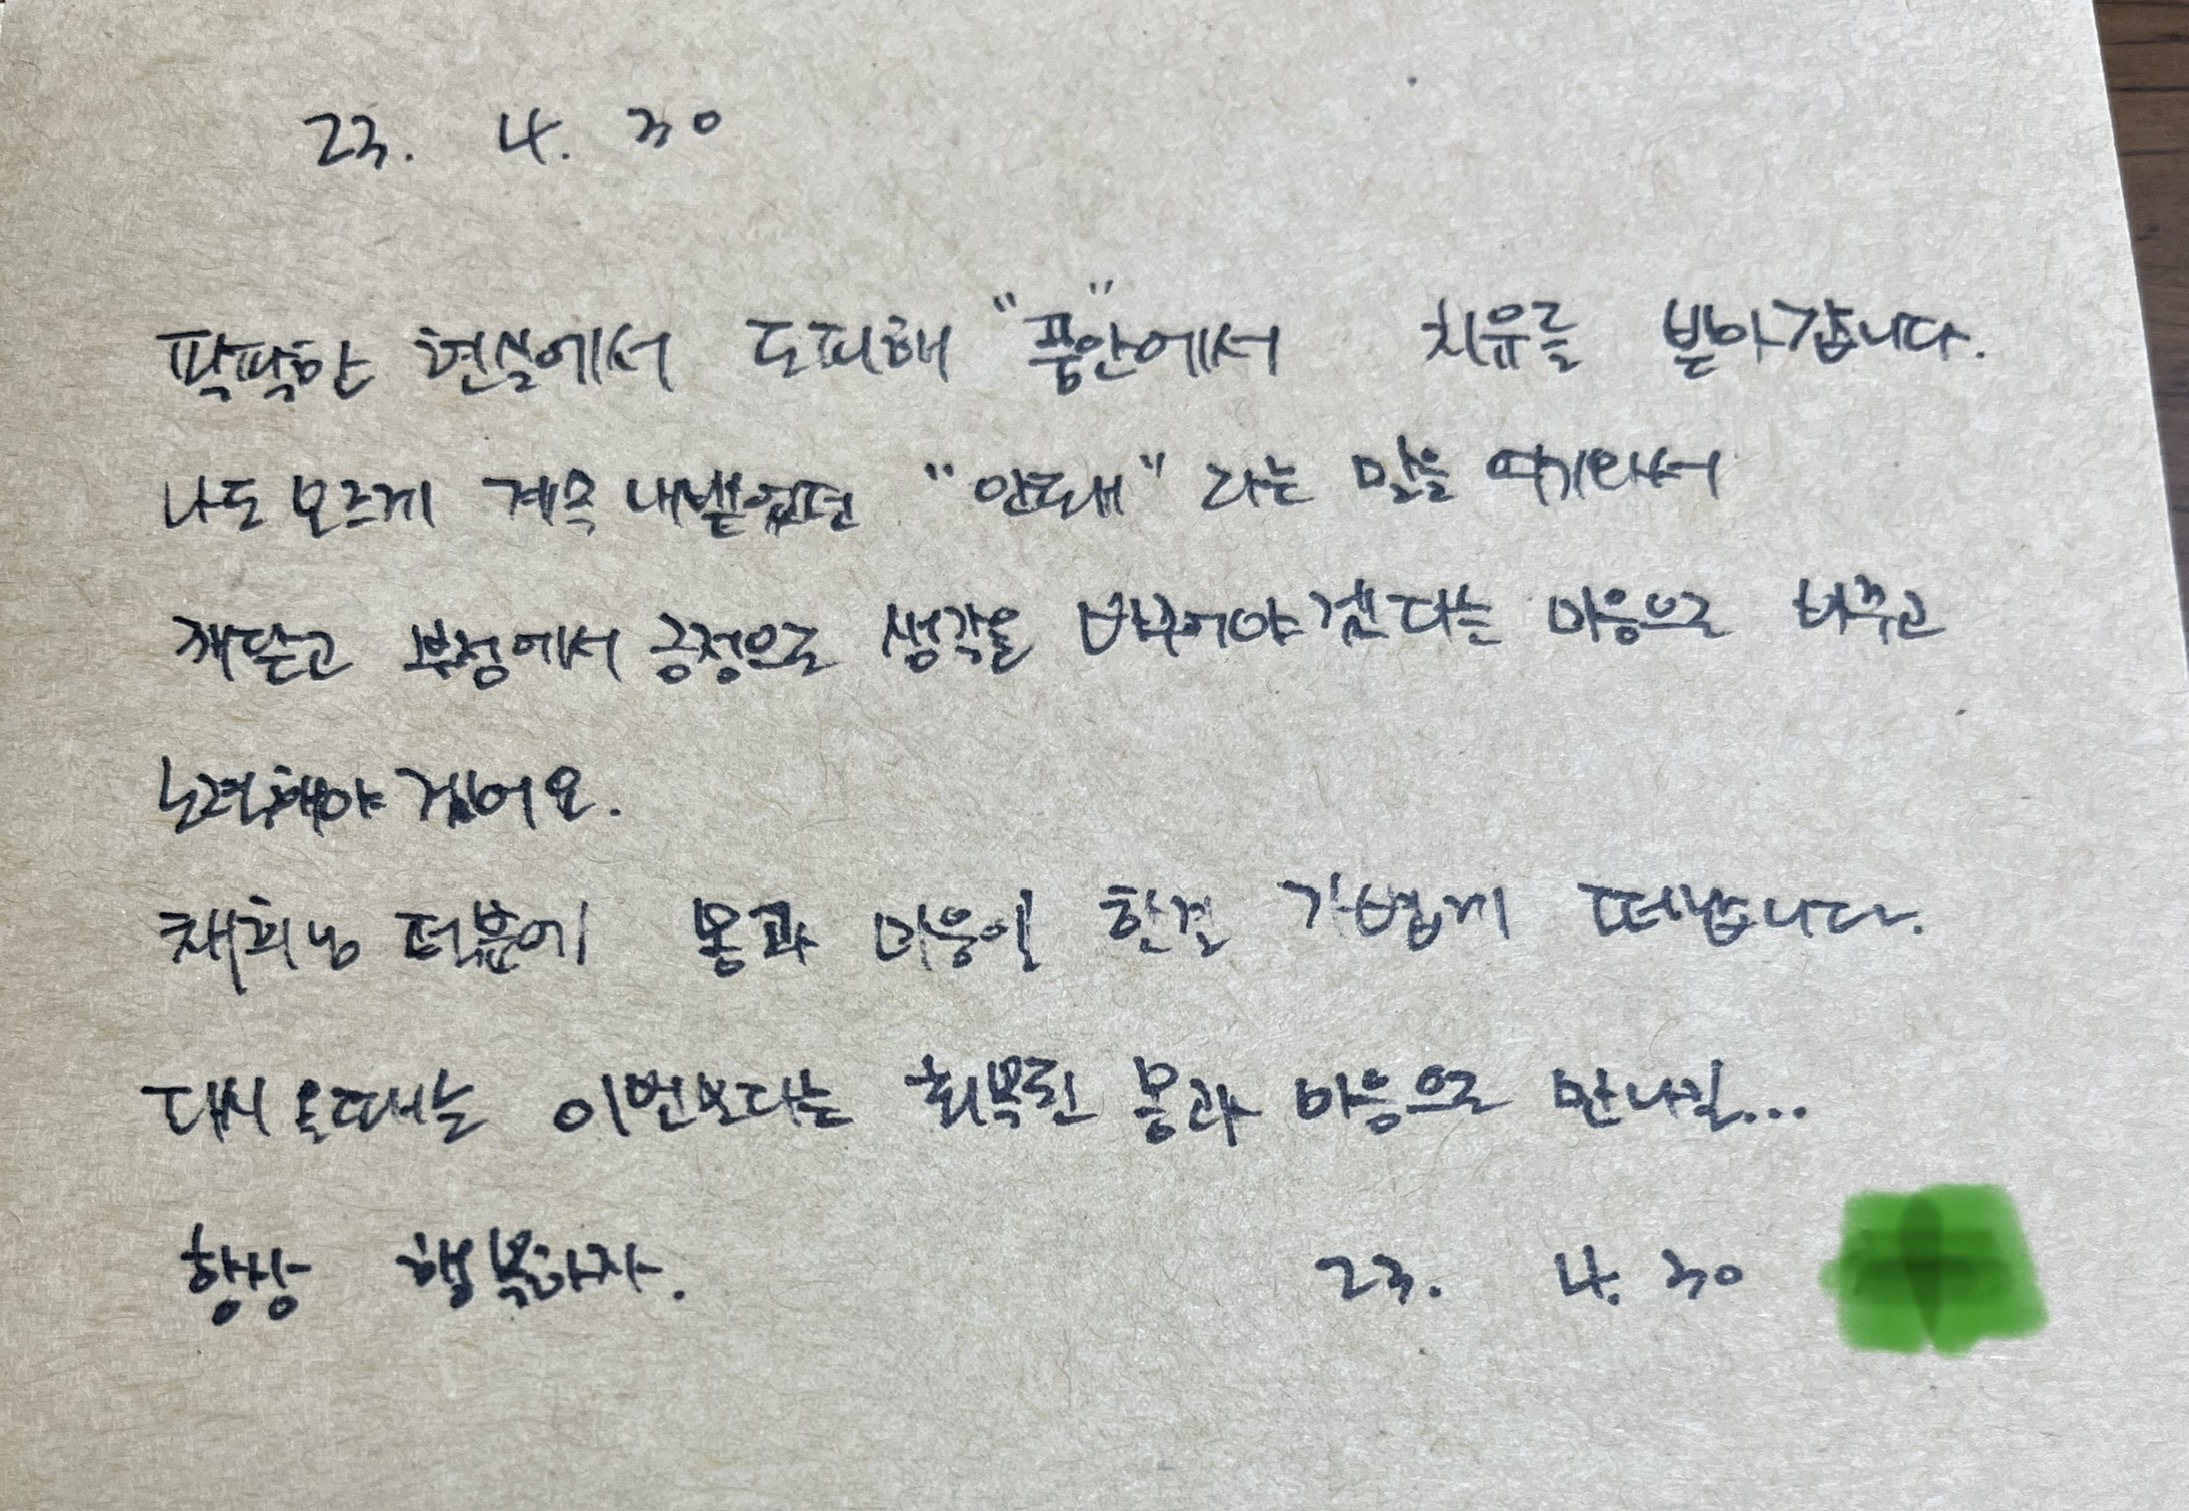 23. 4. 30
팍팍한 현실에서 도피해 "품"안에서 치유를 받아갑니다.
나도 모르게 계속 내뱉었던 "안돼" 라는 말을 여기와서
깨닫고 부정에서 긍정으로 생각을 바꾸어야겠다는 마음으로 바꾸고
노력해야겠어요.
채희님 덕분에 몸과 마음이 한결 가볍게 떠납니다.
다시 올때는 이번보다는 회복된 몸과 마음으로 만나길...
항상 행복하자. 23. 4. 30